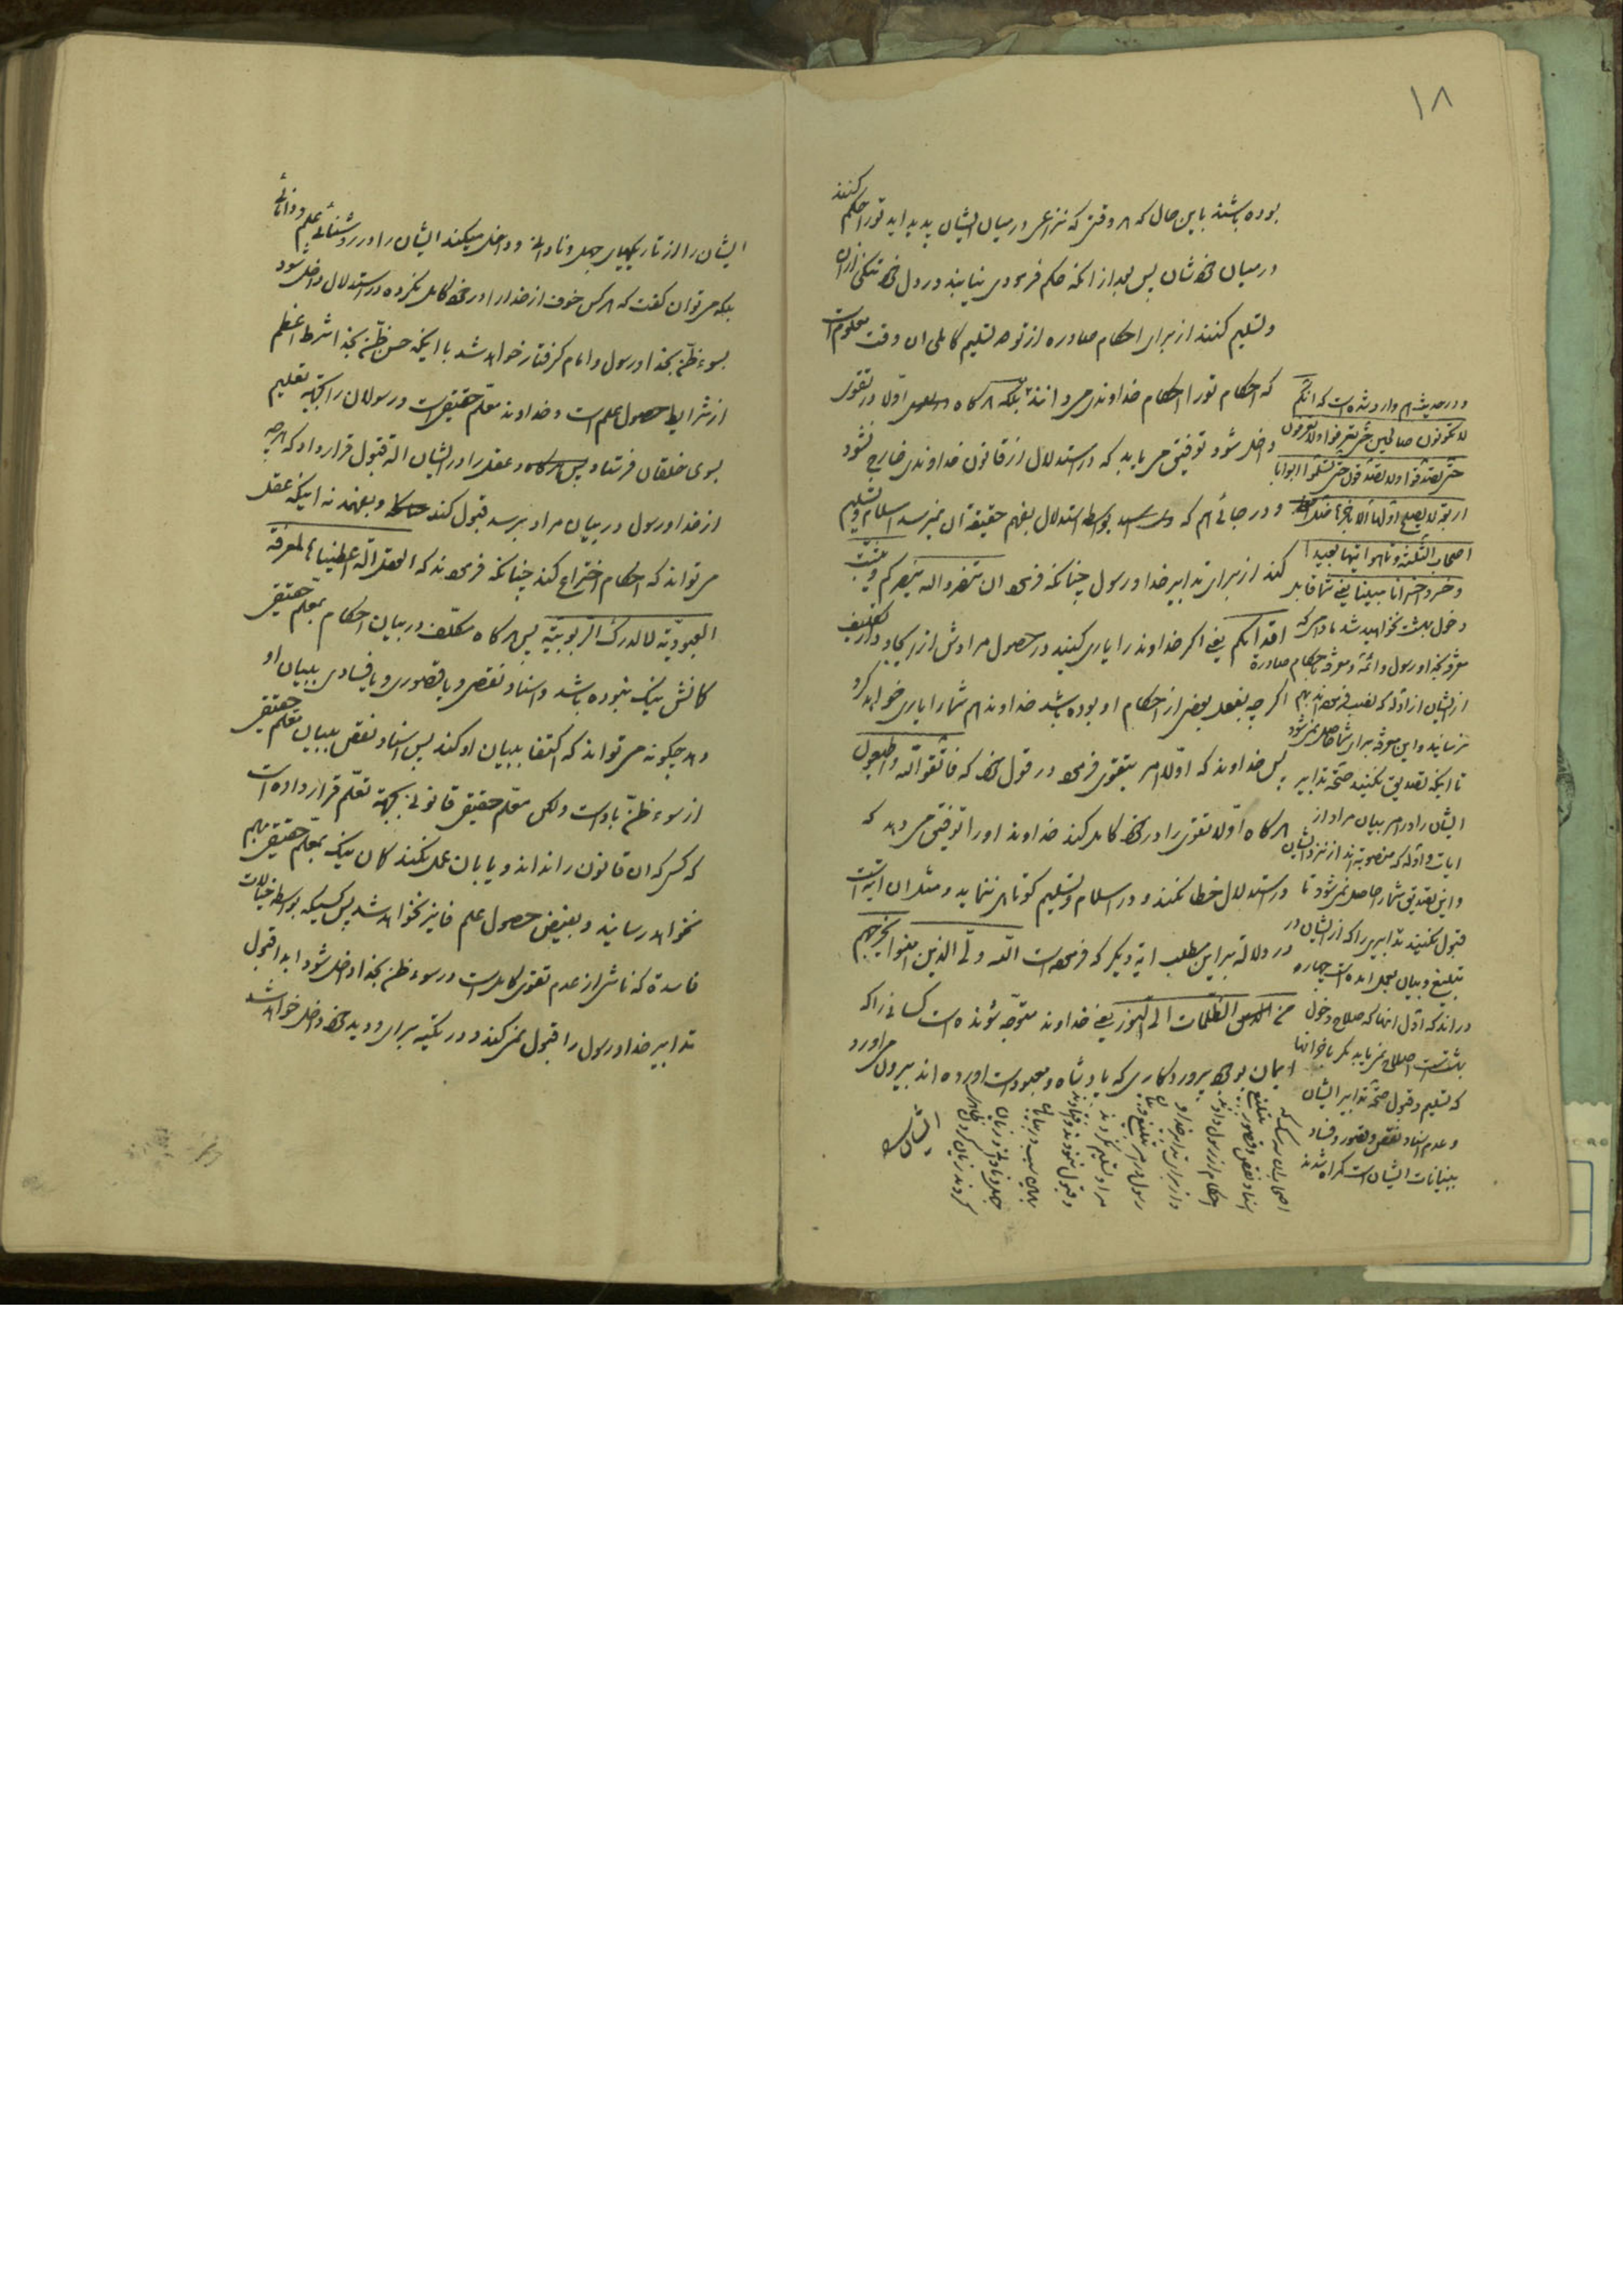 ۱۸
بوده باشند باین حال که هر وقتی که نزاعی در میان ایشان پدید اید تو را حکم کنند
در میان خودشان پس بعد از انکه حکم فرمودی نیابند در دل خود تنکی از ان
و تسلیم کنند از برای احکام صادره از تو حق تسلیم کاملی ان وقت معلوم است
که احکام تو را احکام خداوندی میدانند بلکه هرکاه اولا در تقوی
داخل شود توفیق می یابد که در استدلال از قانون خداوندی خارج نشود
و در جائی هم که بواسطه استدلال بفهم حقیقة ان نمیرسد اسلام و تسلیم
کند از برای تدابیر خدا و رسول چنانکه فرمود ان تنصروا الله ینصرکم و یثبت
اقدامکم یعنی اکر خداوند را یاری کنید در حصول مرادش از ایجاد و از تکلیف
اکر چه بفعل بعضی از احکام او بوده باشد خداوند هم شما را یاری خواهد کرد
پس خداوند که اولا امر بتقوی فرمود در قول خود که فاتقوا الله و اطیعون
هرکاه اولا تقوی را در خود کامل کند خداوند او را توفیق می دهد که
در استدلال خطا نکند و در اسلام و تسلیم کوتاهی ننماید و مثل ان ایه است
در دلالة بر این مطلب ایه دیکر که فرموده است الله ولی الذین امنوا یخرجهم
من الظلمات الی النور یعنی خداوند متوجه شونده است کسانی را که
ایمان بوجود پروردکاری که پادشاه و معبود است اورده اند بیرون می اورد
ایشان را
و در حدیث هم وارد شده است که انکم
لا تکونون صالحین حتی تعرفوا و لا تعرفون
حتی تصدقوا و لا تصدقون حتی تسلموا ابوابا
اربعة لا یصلح اولها الا باخرها ضل
اصحاب الثلثة و تاهوا تیها بعیدا
یعنی شما قابل
دخول بهشت نخواهید شد مادامی که
معرفة بخدا و رسول و ائمه و معرفة باحکام صادرة
از ایشان از ادله که نصب فرموده اند بهم
نرسانید و این معرفة برای شما حاصل نمی شود
تا اینکه تصدیق نکنید صحة تدابیر
ایشان را در امر بیان مراد از
ایات و ادله که منصوبه اند از نزد ایشان
و این تصدیق شما را حاصل نمی شود تا
قبول نکنید تدابیری را که از ایشان در
تبلیغ و بیان بعمل امده است چهار
در اند که اول انها که صلاح دخول
بهشت است اصلاح نمی یابد مکر باخر انها
که تسلیم و قبول صحة تدابیر ایشان
و عدم اسناد نقص و قصور و فساد
ببیانات ایشان است کمراه شدند
اصحاب ان سه که
اسناد نقص و قصور بتبلیغ
احکام از رسول دادند
و از برای تدابیر خدا و
رسول در امر تبلیغ و بیان
مراد تسلیم نکردند
و قبول ننمودند و افتادند
جهل و نادانی
ایشان را از تاریکیهای جهل و نادانی و داخل میکند ایشان را در روشنائی علم و دانائی
بلکه می توان کفت که هرکس خوف از خدا را در خود کامل نکرده در استدلال داخل شود
بسوء ظن بخدا و رسول و امام کرفتار خواهد شد با اینکه حسن ظن بخدا شرط اعظم
از شرایط حصول علم است و خداوند معلم حقیقی است و رسولان را بجهة تعلیم
بسوی خلقان فرستاد و عقل را در ایشان الة قبول قرار داد که هرچه
از خدا و رسول در بیان مراد برسد قبول کند و بفهمد نه اینکه عقل
می تواند که احکام اختراع کند چنانکه فرمودند که العقل الة اعطیناها لمعرفة
العبودیة لا لدرک الربوبیة پس هرکاه مکلف در بیان احکام بمعلم حقیقی
کمانش نیک نبوده باشد و اسناد نقصی و یا قصوری و یا فسادی ببیان او
دهد چکونه می تواند که اکتفا ببیان او کند پس اسناد نقص ببیان معلم حقیقی
از سوء ظن باو است ولکن معلم حقیقی قانونی بجهة تعلم قرار داده است
که کسی که ان قانون را نداند و یا بان عمل نکند کمان نیک بمعلم حقیقی بهم
نخواهد رسانید و بفیض حصول علم فایز نخواهد شد پس کسیکه بواسطه خیالات
فاسدة که ناشی از عدم تقوی کامل است در سوء ظن بخدا داخل شود ابدا قبول
تدابیر خدا و رسول را قبول نمی کند و در یکتبه برای و دید خود داخل خواهد شد